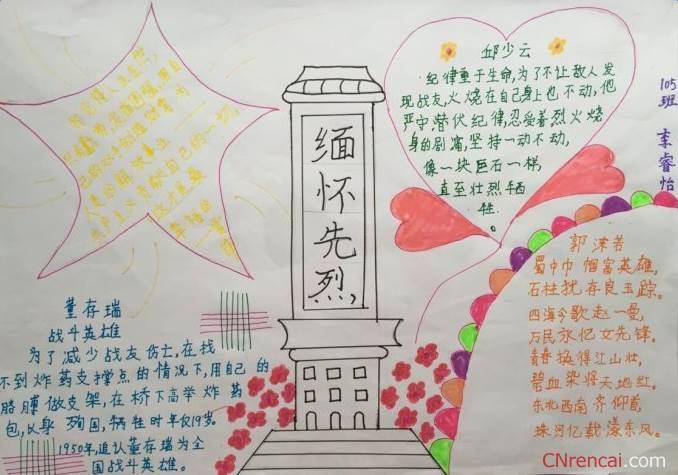 我觉得人生在世,
只有勤劳,发奋图强,用自
己的双手创造财富,为
人类的解放事业
共产主义贡献自己的一切,
这才是最
幸福的
缅怀先烈,
邱少云
纪律重于生命,为了不让敌人发
现战友,火烧在自己身上也不动,他
严守潜伏纪律,忍受着烈火烧
身的剧痛,坚持一动不动,
像一块巨石一样,
直至壮烈牺
牲。
105
班
李睿怡
董存瑞
战斗英雄
为了减少战友伤亡,在找
不到炸药支撑点的情况下,用自己的
胳膊做支架,在桥下高举炸药
包,以身殉国,牺牲时年仅19岁。
1950年,追认董存瑞为全
国战斗英雄。
郭沫若
蜀中巾帼富英雄,
石柱犹存良玉踪。
四海今歌赵一曼,
万民永忆女先锋。
青春换得江山壮,
碧血染将天地红。
东北西南齐仰首,
珠河亿载漾东风。
CNrencai.com